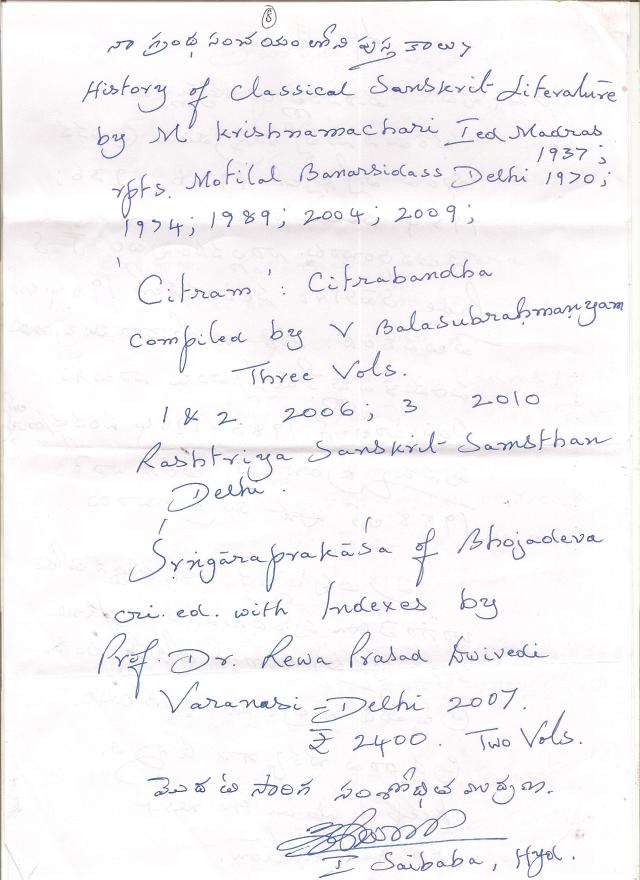 8
నా గ్రంథ సంచయం లోని పుస్తకాలు
History of Classical Sanskrit Literature
by M Krishnamachari I ed Madras
1937;
rpts. Motilal Banarsidass Delhi 1970;
1974; 1989; 2004; 2009;
'Citram': Citrabandha
compiled by V Balasubrahmanyam
Three Vols.
1 & 2 2006; 3 2010
Rashtriya Sanskrit Samsthan
Delhi.
Śrṇgāraprakāśa of Bhojadeva
cri. ed. with Indexes by
Prof. Dr. Rewa Prasad Dwivedi
Varanasi - Delhi 2007.
₹ 2400. Two Vols.
మొదటి సారిగ సంశోధిత ముద్రణ.
I Saibaba, Hyd.